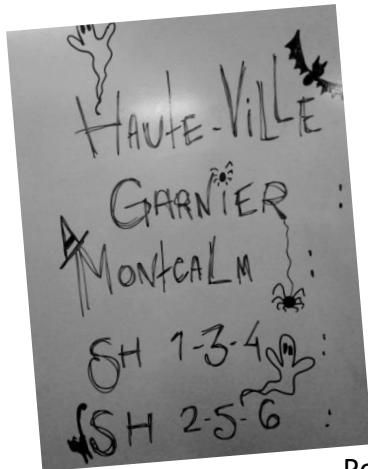 HAUTE-VILLE
GARNIER :
MONTCALM :
SH 1-3-4 :
SH 2-5-6 :